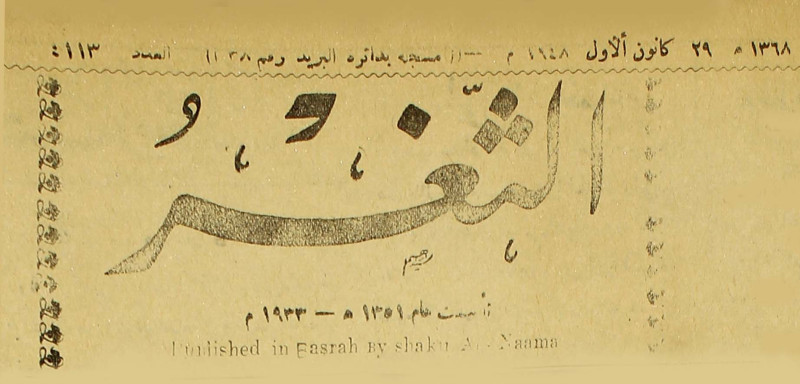 ١٣٦٨ ه ٢٩ كانون ألاول ١٩٤٨ م —(( مسجله بدائرة البريد رقم ٣٨ ١)) العدد ١١٣:
الثغر
أسست عام ١٣٥١ ه — ١٩٣٣ م
Published in Basrah By shakir Al-Naama